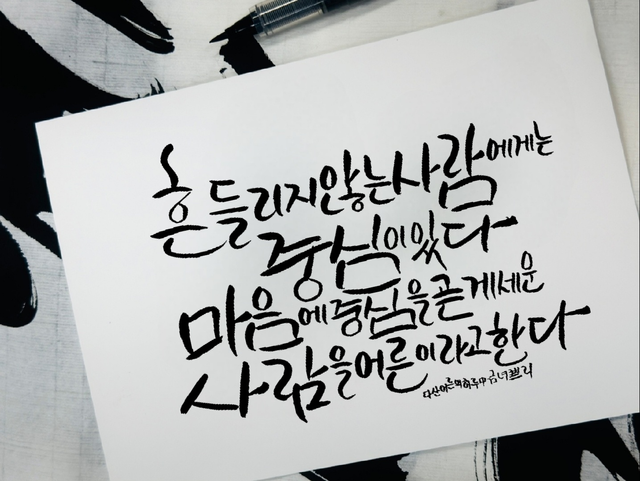 흔들리지않는사람에게는
중심이있다
마음에중심을곧게세운
사람을어른이라고한다
다산어른의하루中